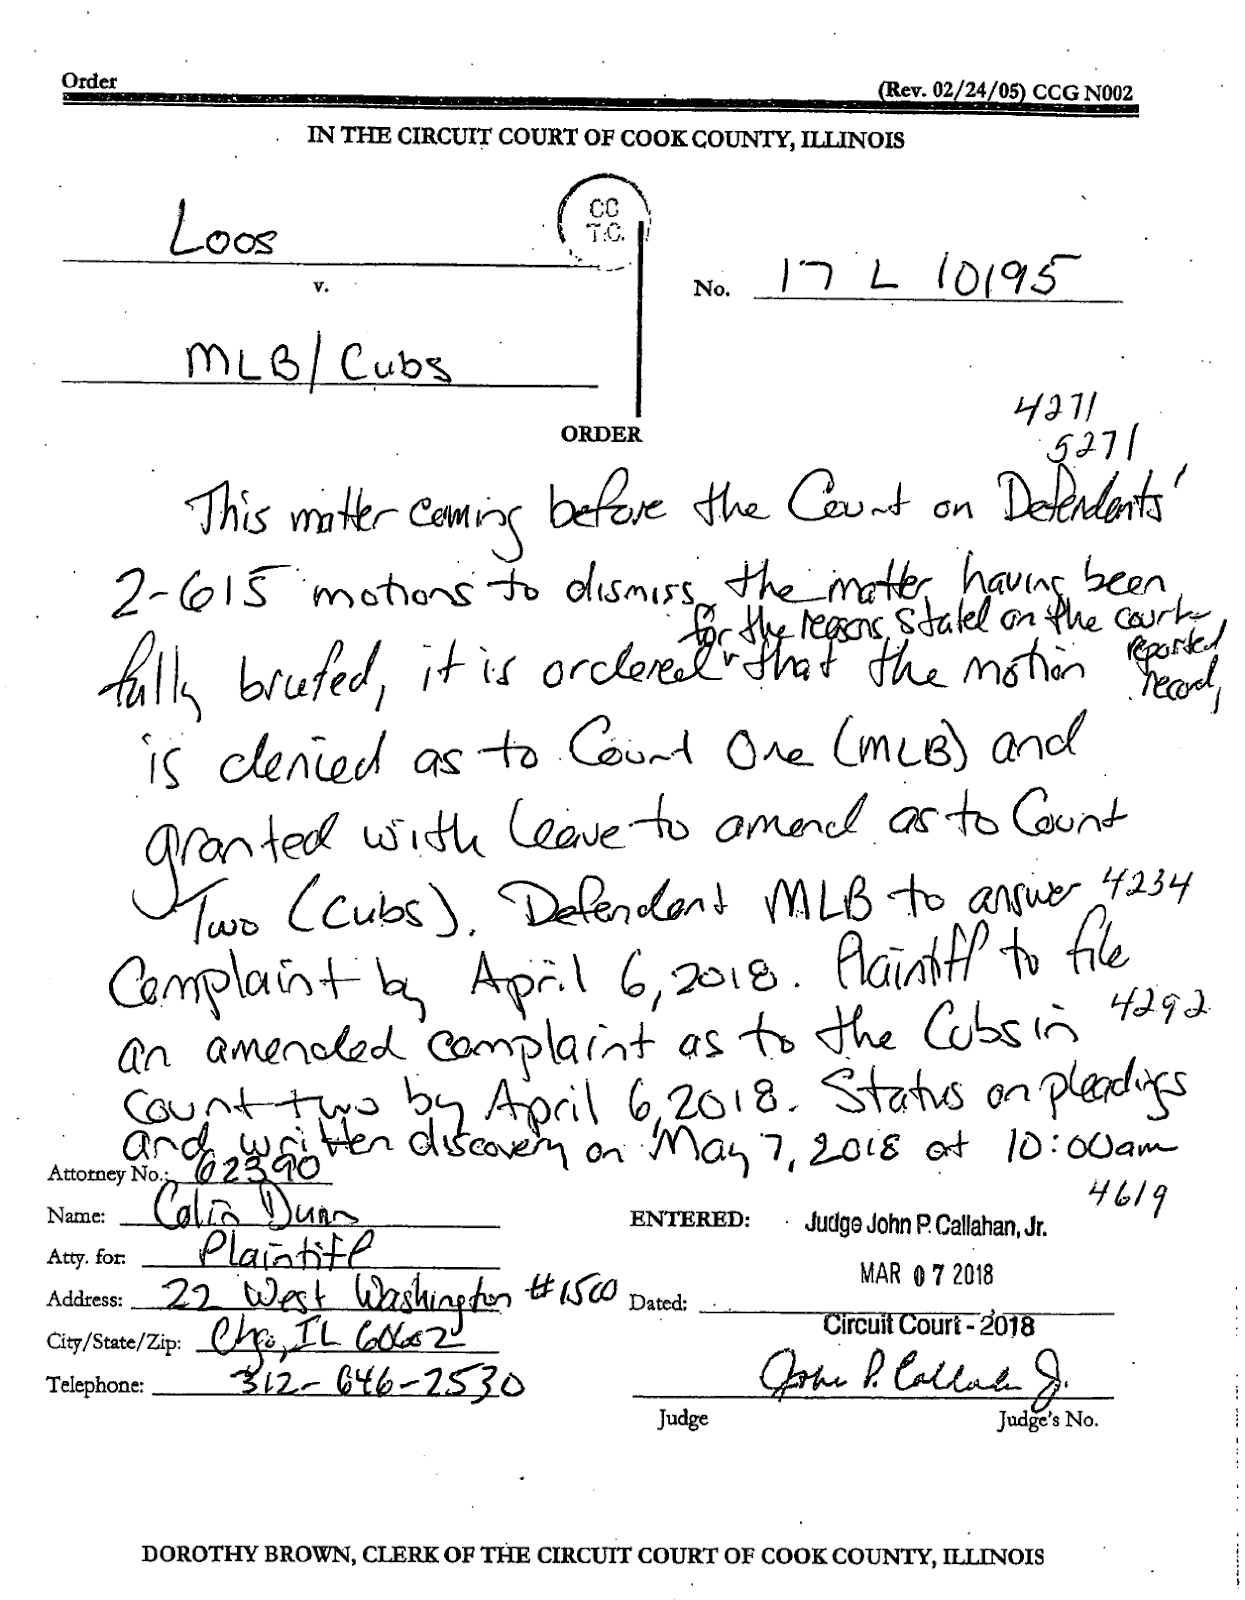 Order
(Rev. 02/24/05) CCG N002
IN THE CIRCUIT COURT OF COOK COUNTY, ILLINOIS
CC
T.C.
Loos
v.
No. 17 L 10195
MLB/Cubs
4271
5271
ORDER
This matter coming before the Court on Defendants'
2-615 motions to dismiss, the matter having been
for the reasons stated on the court-
reported
record,
fully briefed, it is ordered that the motion
is denied as to Count One (MLB) and
granted with leave to amend as to Count
Two (Cubs). Defendant MLB to answer 4234
Complaint by April 6, 2018. Plaintiff to file
an amended complaint as to the Cubs in 4292
count two by April 6, 2018. Status on pleadings
and written discovery on May 7, 2018 at 10:00am
4619
Attorney No.: 62390
Name: Colin Dunn
Atty. for: Plaintiff
Address: 22 West Washington #1500
City/State/Zip: Chgo, IL 60602
Telephone: 312-646-2530
ENTERED: Judge John P. Callahan, Jr.
MAR 07 2018
Dated:
Circuit Court - 2018
John P. Callahan Jr.
Judge Judge's No.
DOROTHY BROWN, CLERK OF THE CIRCUIT COURT OF COOK COUNTY, ILLINOIS